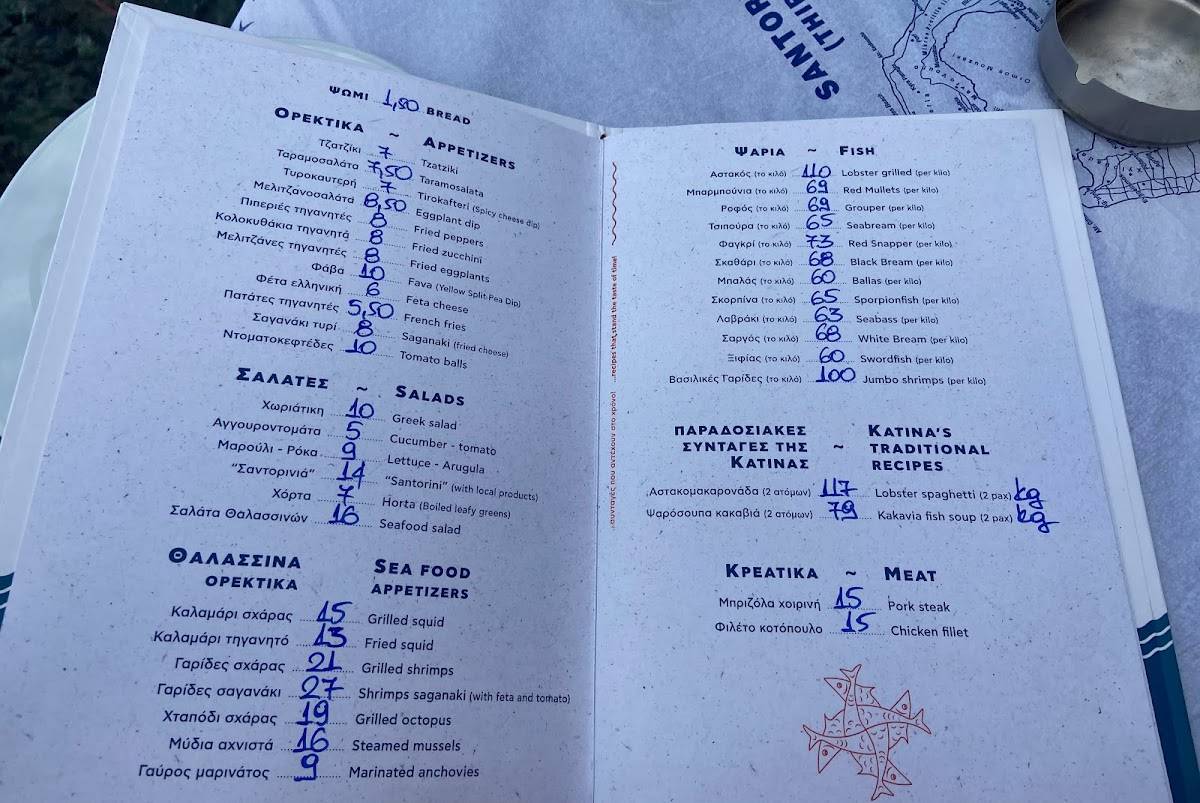 ΨΩΜΙ 1,50 BREAD
ΟΡΕΚΤΙΚΑ ~ APPETIZERS
Τζατζίκι 7 Tzatziki
Ταραμοσαλάτα 7,50 Taramosalata
Τυροκαυτερή 7 Tirokafteri (Spicy cheese dip)
Μελιτζανοσαλάτα 8,50 Eggplant dip
Πιπεριές τηγανητές 8 Fried peppers
Κολοκυθάκια τηγανητά 8 Fried zucchini
Μελιτζάνες τηγανητές 8 Fried eggplants
Φάβα 10 Fava (Yellow Split Pea Dip)
Φέτα ελληνική 6 Feta cheese
Πατάτες τηγανητές 5,50 French fries
Σαγανάκι τυρί 8 Saganaki (fried cheese)
Ντοματοκεφτέδες 10 Tomato balls
ΣΑΛΑΤΕΣ ~ SALADS
Χωριάτικη 10 Greek salad
Αγγουροντομάτα 5 Cucumber - tomato
Μαρούλι - Ρόκα 9 Lettuce - Arugula
"Σαντορινιά" 14 "Santorini" (with local products)
Χόρτα 7 Horta (Boiled leafy greens)
Σαλάτα Θαλασσινών 16 Seafood salad
ΘΑΛΑΣΣΙΝΑ ΟΡΕΚΤΙΚΑ SEA FOOD APPETIZERS
Καλαμάρι σχάρας 15 Grilled squid
Καλαμάρι τηγανητό 13 Fried squid
Γαρίδες σχάρας 21 Grilled shrimps
Γαρίδες σαγανάκι 27 Shrimps saganaki (with feta and tomato)
Χταπόδι σχάρας 19 Grilled octopus
Μύδια αχνιστά 16 Steamed mussels
Γαύρος μαρινάτος 9 Marinated anchovies
...συνταγές που αντέχουν στο χρόνο! ...recipes that stand the taste of time!
ΨΑΡΙΑ ~ FISH
Αστακός (το κιλό) 110 Lobster grilled (per kilo)
Μπαρμπούνια (το κιλό) 69 Red Mullets (per kilo)
Ροφός (το κιλό) 69 Grouper (per kilo)
Τσιπούρα (το κιλό) 65 Seabream (per kilo)
Φαγκρί (το κιλό) 73 Red Snapper (per kilo)
Σκαθάρι (το κιλό) 68 Black Bream (per kilo)
Μπαλάς (το κιλό) 60 Ballas (per kilo)
Σκορπίνα (το κιλό) 65 Sporpionfish (per kilo)
Λαβράκι (το κιλό) 63 Seabass (per kilo)
Σαργός (το κιλό) 68 White Bream (per kilo)
Ξιφίας (το κιλό) 60 Swordfish (per kilo)
Βασιλικές Γαρίδες (το κιλό) 100 Jumbo shrimps (per kilo)
ΠΑΡΑΔΟΣΙΑΚΕΣ ΣΥΝΤΑΓΕΣ ΤΗΣ ΚΑΤΙΝΑΣ ~ KATINA'S TRADITIONAL RECIPES
Αστακομακαρονάδα (2 ατόμων) 117 Lobster spaghetti (2 pax) kg
Ψαρόσουπα κακαβιά (2 ατόμων) 79 Kakavia fish soup (2 pax) kg
ΚΡΕΑΤΙΚΑ ~ MEAT
Μπριζόλα χοιρινή 15 Pork steak
Φιλέτο κοτόπουλο 15 Chicken fillet